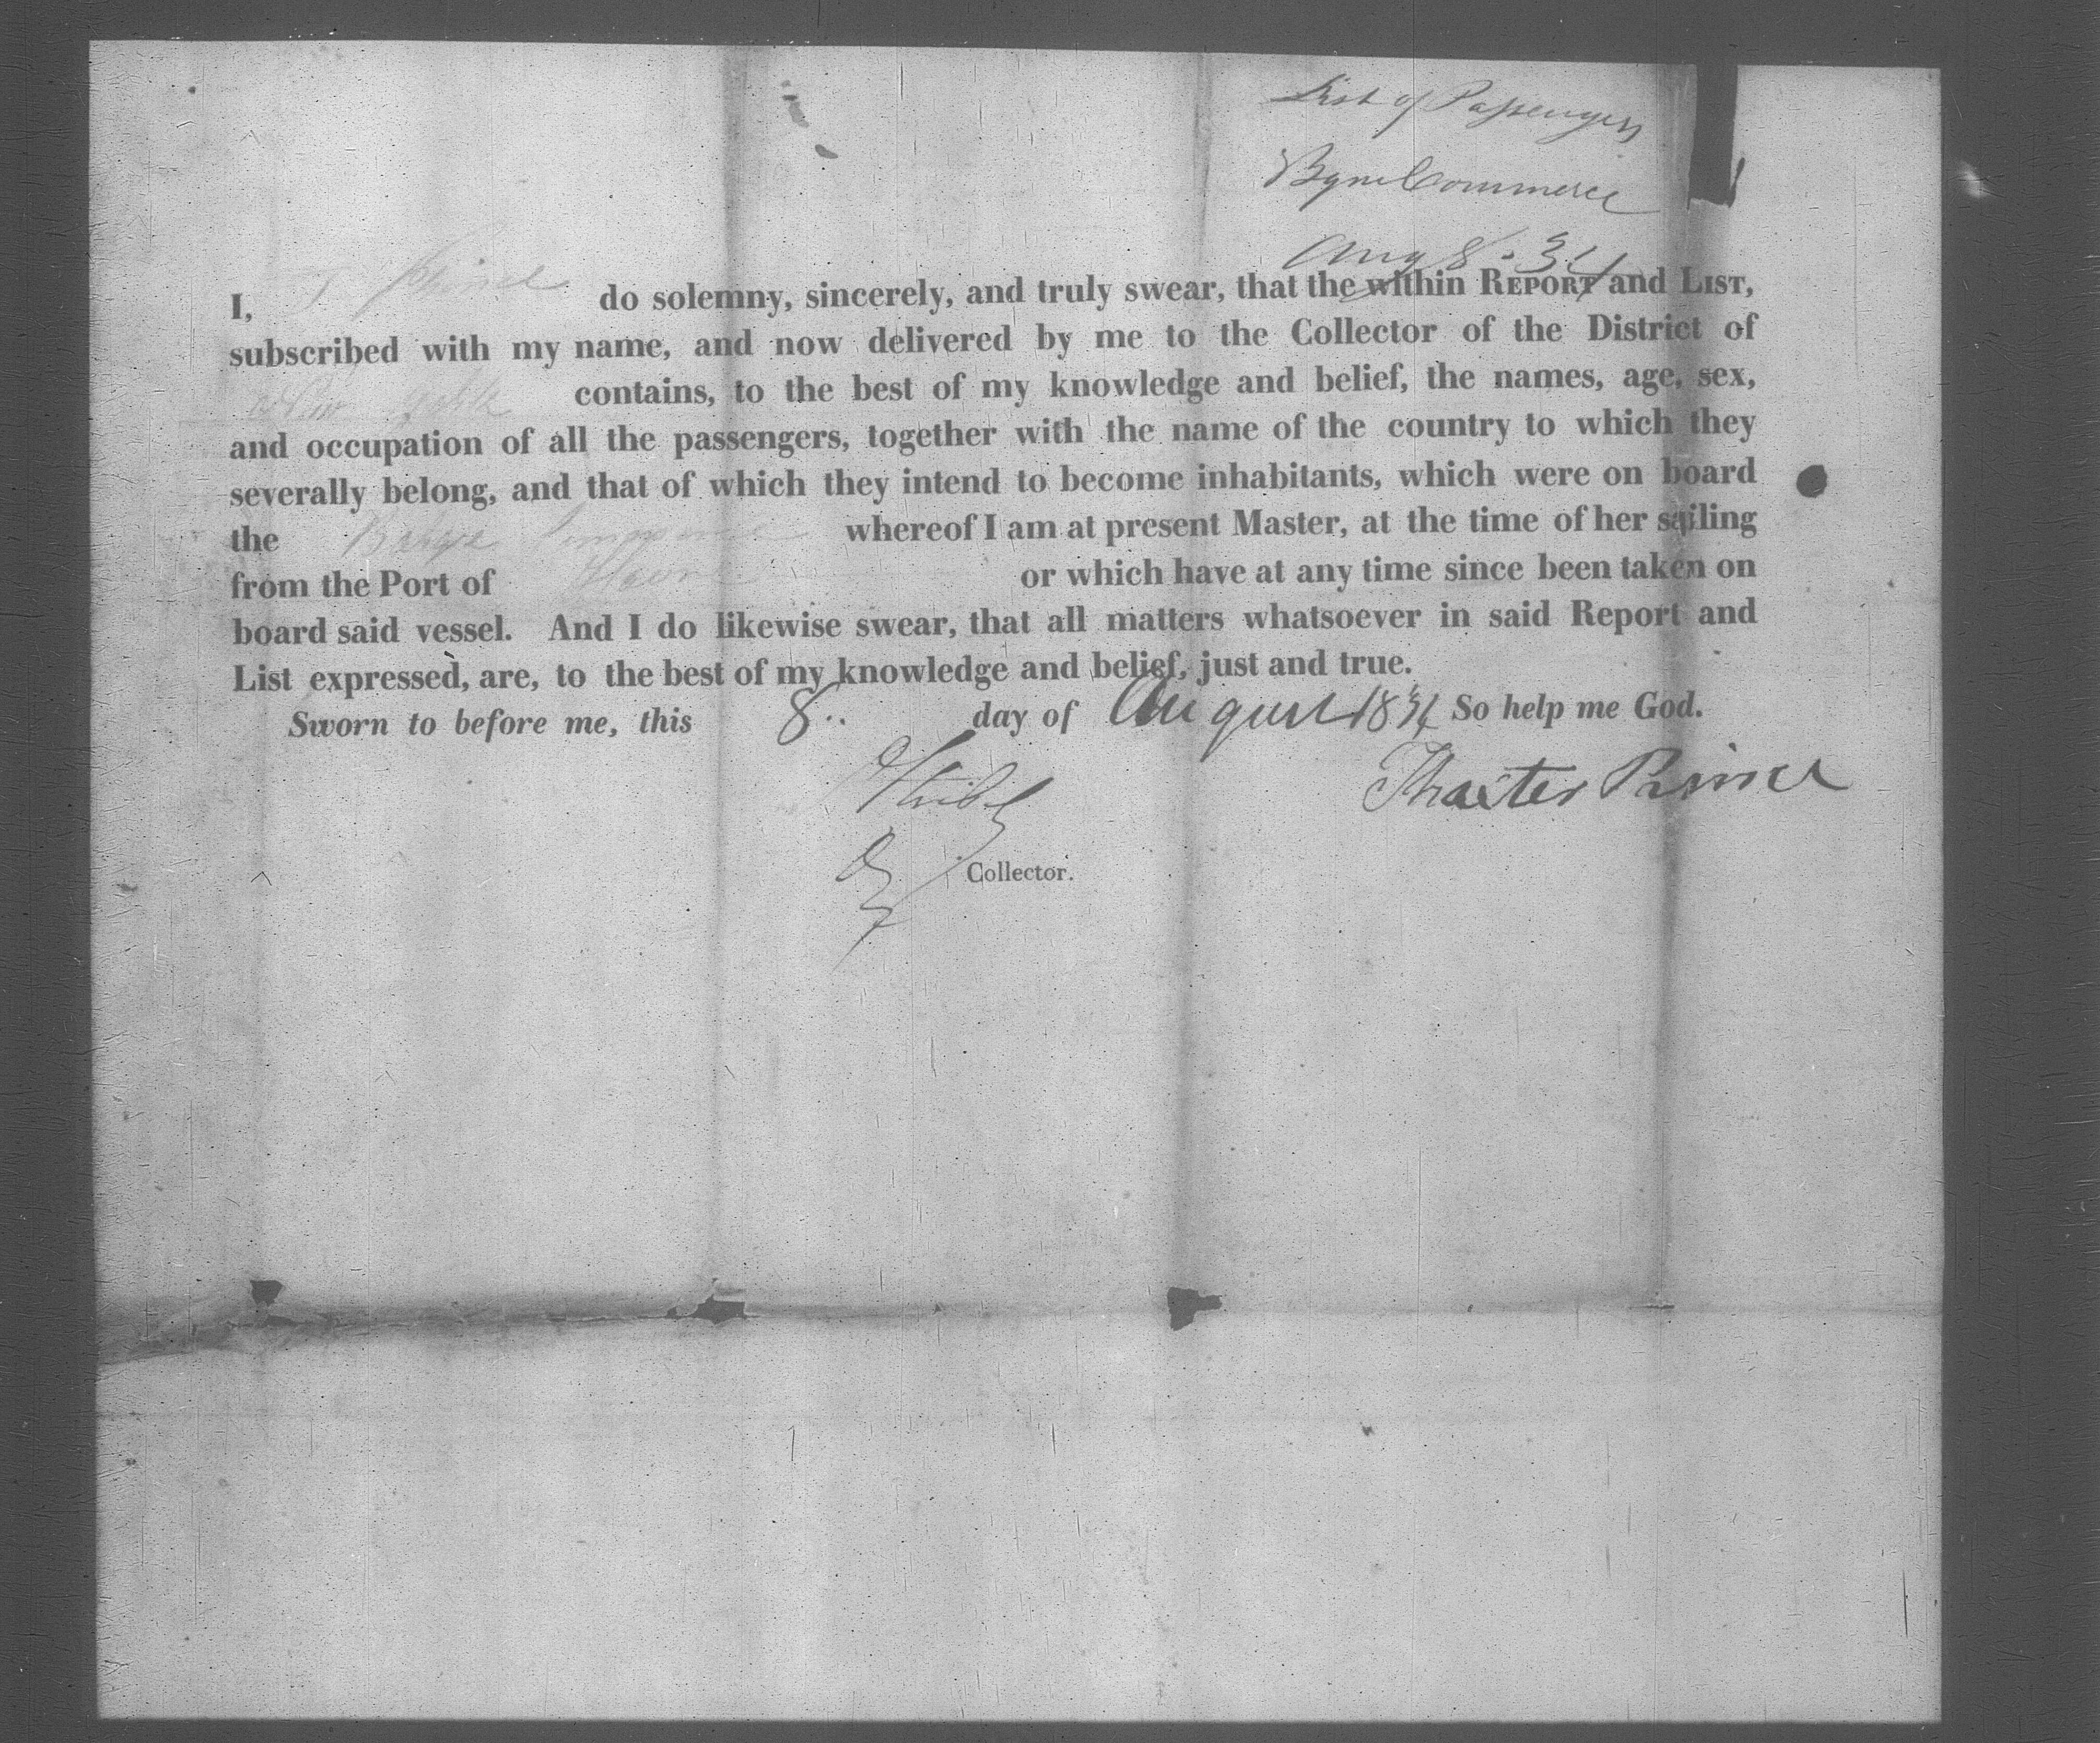 List of Passengers
Commerce
Aug 8. 34
I, T Prince do solemny, sincerely, and truly swear, that the within REPORT and LIST,
subscribed with my name, and now delivered by me to the Collector of the District of
New York contains, to the best of my knowledge and belief, the names, age, sex,
and occupation of all the passengers, together with the name of the country to which they
severally belong, and that of which they intend to become inhabitants, which were on board
the whereof I am at present Master, at the time of her sailing
from the Port of Havre or which have at any time since been taken on
board said vessel. And I do likewise swear, that all matters whatsoever in said Report and
List expressed, are, to the best of my knowledge and belief, just and true.
Sworn to before me, this 8.. day of August 1834 So help me God.
Thaxter Prince
Collector.